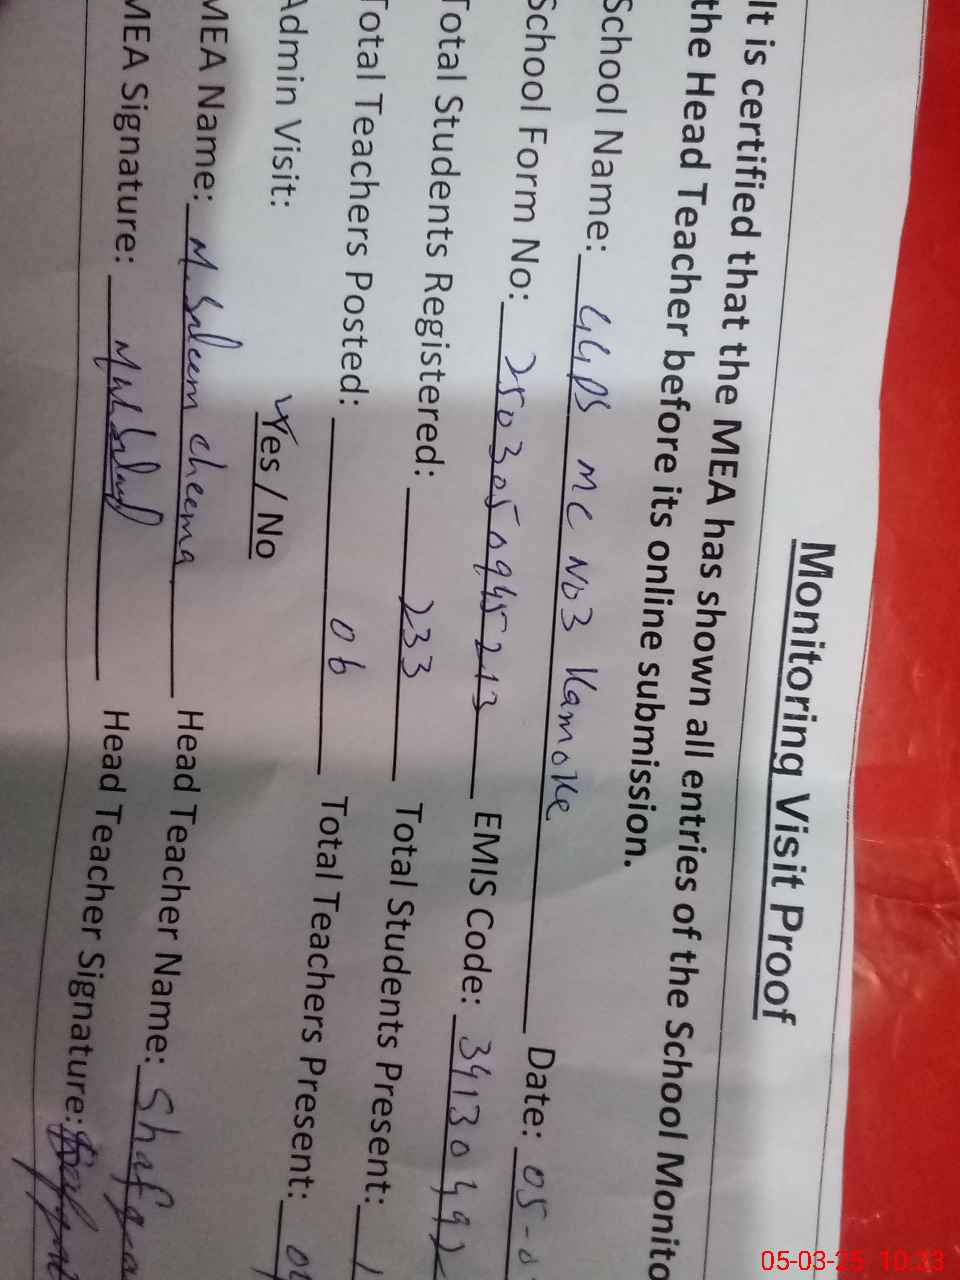 Monitoring Visit Proof
It is certified that the MEA has shown all entries of the School Monito
the Head Teacher before its online submission.
School Name: GGPS MC No3 Kamoke Date: 05-0
School Form No: 2503050945213 EMIS Code: 3413049
Total Students Registered: 233 Total Students Present: 1
Total Teachers Posted: 06 Total Teachers Present: 0
Admin Visit: Yes / No
MEA Name: M. Saleem cheema Head Teacher Name: Shafq
MEA Signature: Head Teacher Signature:
05-03-25 10:23